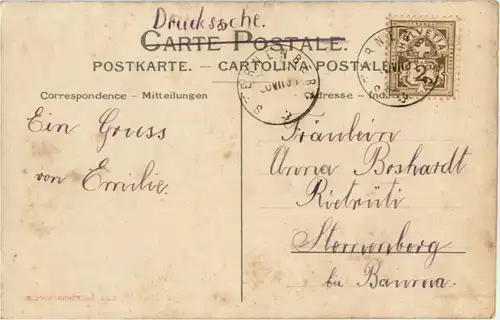 Drucksache.
CARTE POSTALE.
POSTKARTE. — CARTOLINA POSTALE
Correspondence - Mitteilungen
Adresse -
HELVETIA
2
STERNENBERG
Ein Gruss
von Emilie.
Fräulein
Anna Boshardt
Rietrüti
Sternenberg
bei Bauma.